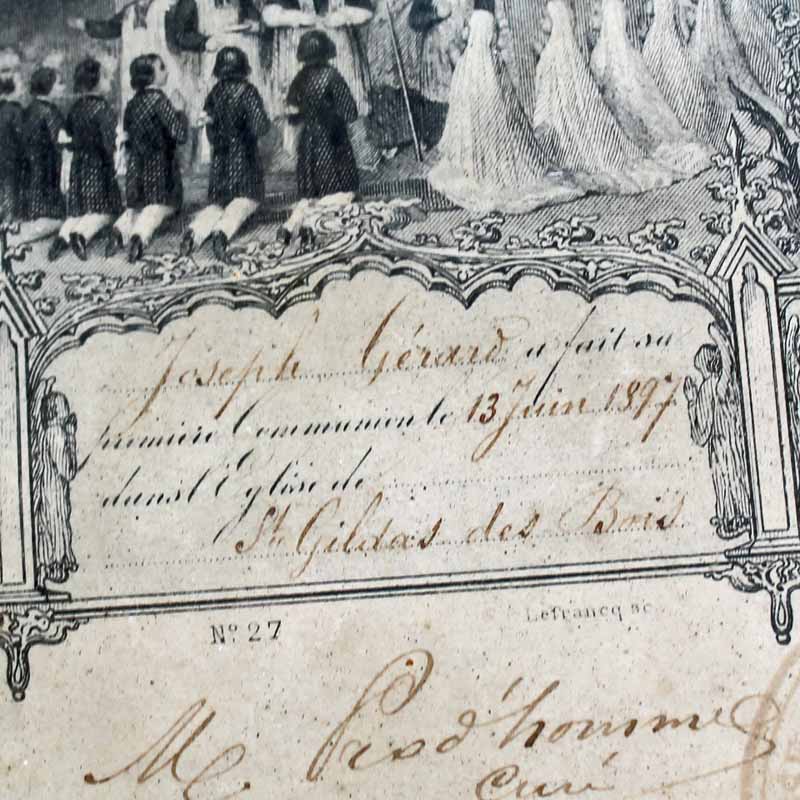 Joseph Gérard a fait sa
première Communion le 13 Juin 1897
dans l'Eglise de
St Gildas des Bois
No. 27
Lefrancq sc.
M Prod'homme
Curé